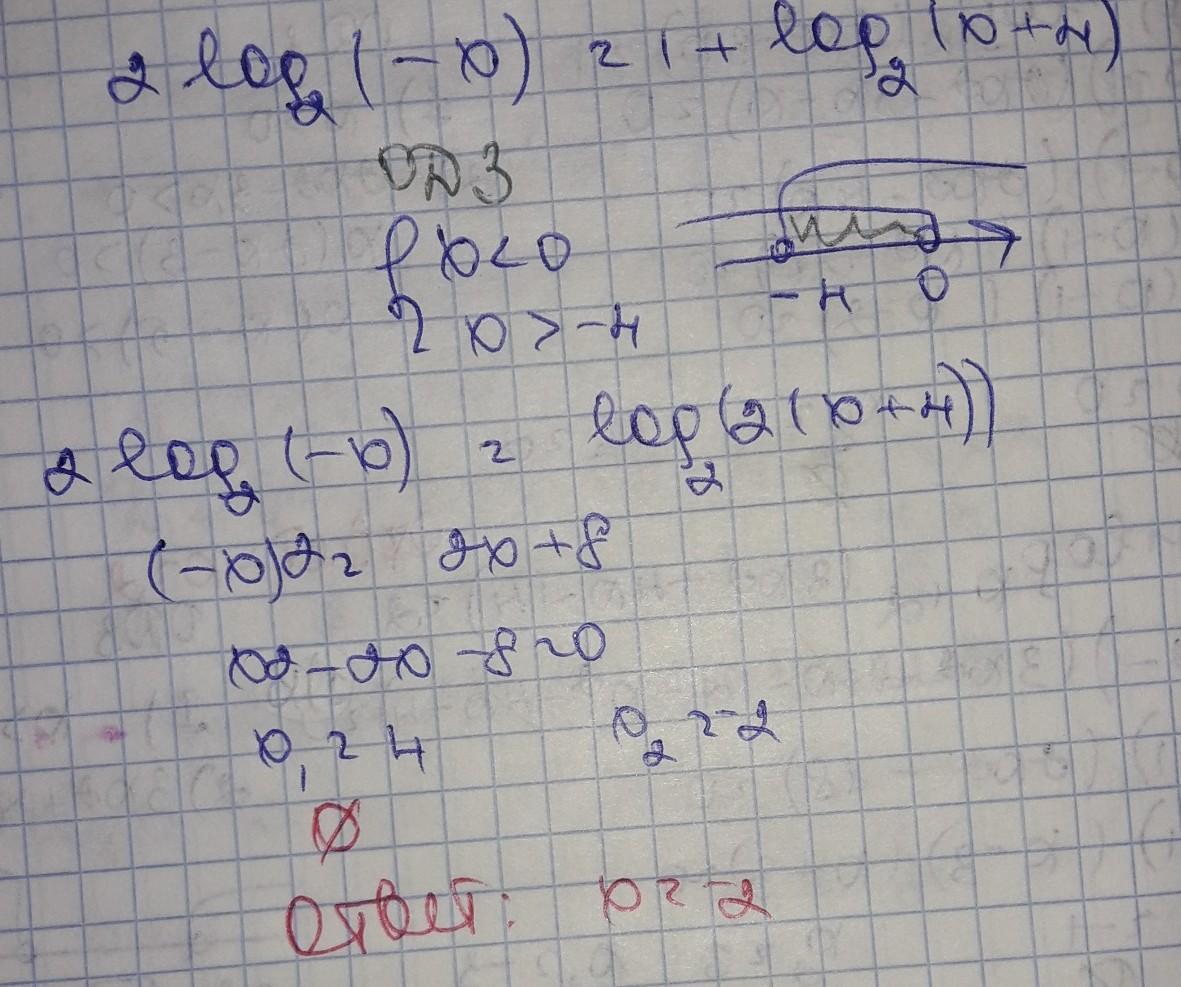 2 log₂(-x) = 1 + log₂(x+4)
ОДЗ
{ x<0
x > -4
-4 0
2 log₂(-x) = log₂(2(x+4))
(-x)2 = 2x+8
x2 - 2x - 8 = 0
x₁ = 4 x₂ = -2
∅
Ответ: x = -2